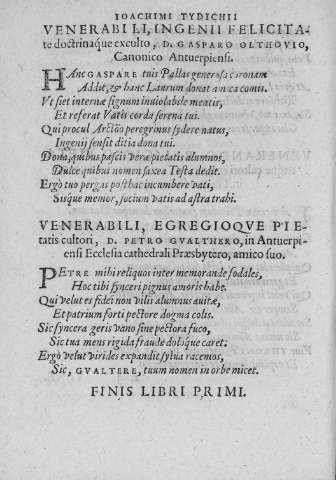 IOACHIMI TYDICHII
VENERABILI, INGENII FELICITA-
te doctrinaque exculto, D. GASPARO OLTHOVIO,
Canonico Antuerpiensi.
HANC GASPARE tuis Pallas generosa coronam
Addit, & hanc Laurum donat amica comis.
Vt siet internæ signum inuiolabile mentis,
Et referat Vatis corda serena tui.
Qui procul Arctôo peregrinus sydere natus,
Ingenij sensit ditia dona tui.
Dona, quibus pascis veræ pietatis alumnos,
Dulce quibus nomen saxea Testa dedit.
Ergò tuo pergas posthac incumbere vati,
Sisque memor, socium vatis ad astra trahi.
VENERABILI, EGREGIOQVE PIE-
tatis cultori, D. PETRO GVALTHERO, in Antuerpi-
ensi Ecclesia cathedrali Præsbytero, amico suo.
PETRE mihi reliquos inter memorande sodales,
Hoc tibi synceri pignus amoris habe.
Qui velut es fidei non vilis alumnus auitæ,
Et patrium forti pectore dogma colis.
Sic syncera geris vano sine pectora fuco,
Sic tua mens rigida fraude dolisque caret.
Ergò velut virides expandit sylua racemos,
Sic, GVALTERE, tuum nomen in orbe micet.
FINIS LIBRI PRIMI.